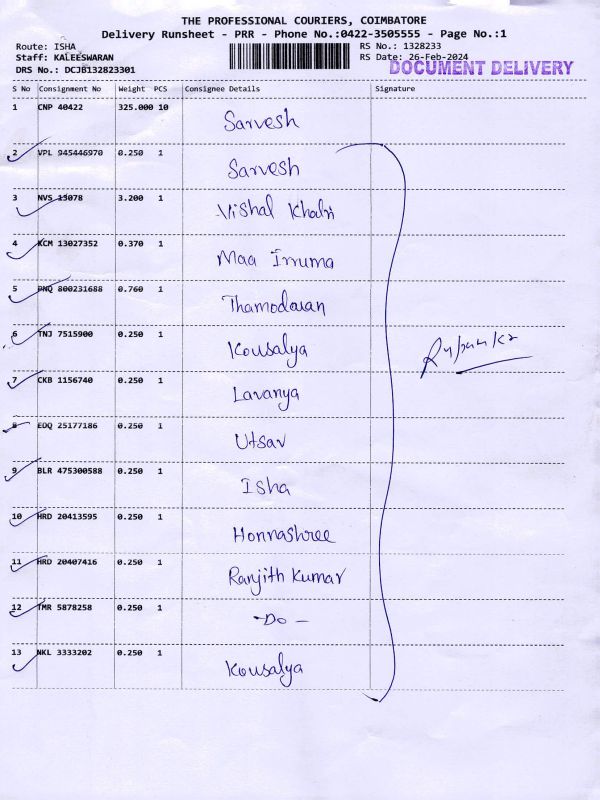 THE PROFESSIONAL COURIERS, COIMBATORE
Delivery Runsheet - PRR - Phone No.:0422-3505555 - Page No.:1
Route: ISHA RS No.: 1328233
Staff: KALEESWARAN RS Date: 26-Feb-2024
DRS No.: DCJB132823301 DOCUMENT DELIVERY
S No Consignment No Weight PCS Consignee Details Signature
1 CNP 40422 325.000 10 Sarvesh
2 VPL 945446970 0.250 1 Sarvesh
3 NVS 13078 3.200 1 Vishal Khatri
4 KCM 13027352 0.370 1 Maa Irruma
5 PNQ 800231688 0.760 1 Thamodaran
6 TNJ 7515900 0.250 1 Kousalya
7 CKB 1156740 0.250 1 Lavanya
8 EDQ 25177186 0.250 1 Utsav
9 BLR 475300588 0.250 1 Isha
10 HRD 20413595 0.250 1 Honnashree
11 HRD 20407416 0.250 1 Ranjith Kumar
12 TMR 5878258 0.250 1 -Do-
13 NKL 3333202 0.250 1 Kousalya